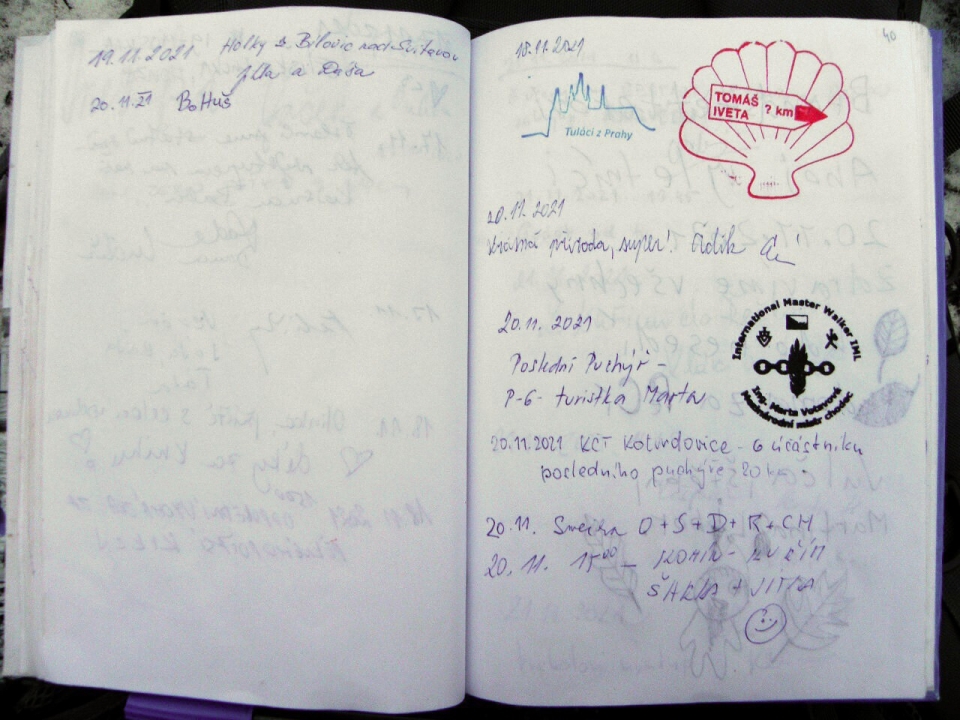 19.11.2021 Holky z Bílovic nad Svitavou
Jilla a Dáša
20.11.21 BoHuš
40
18.11.2021
Tuláci z Prahy
TOMÁŠ
IVETA ? km
20.11.2021
Krásná příroda, super!
20.11. 2021
Poslední Puchýř –
P-6- turistka Marta
International Master Walker IML
Ing. Marta
Mezinárodní mistr chodec
20.11.2021 KČT Kotvrdovice – 6 účastníku
posledního puchýře 20 km.
20.11. Smejka O + S + D + R + CH
20.11. 15⁰⁰ – KOMÍN – KUŘIM
ŠÁRKA + JITKA